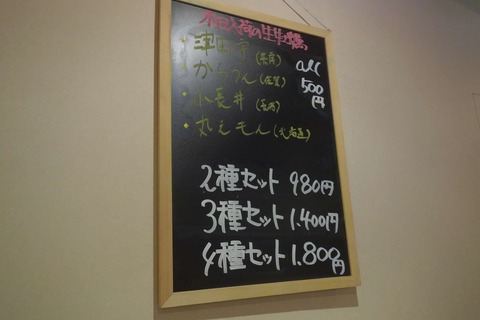 本日入荷の生牡蠣
・津田宇(兵庫) all
・からつん(佐賀) 500円
・小長井(長崎)
・丸えもん(北海道)
2種セット 980円
3種セット 1.400円
4種セット 1.800円